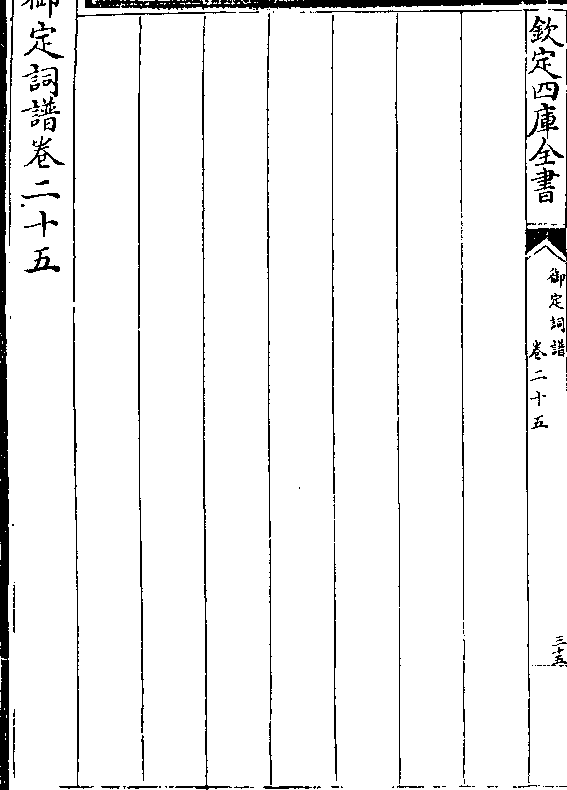 欽定四庫全書
御定詞譜
卷二十五
三十五
御定詞譜卷二十五